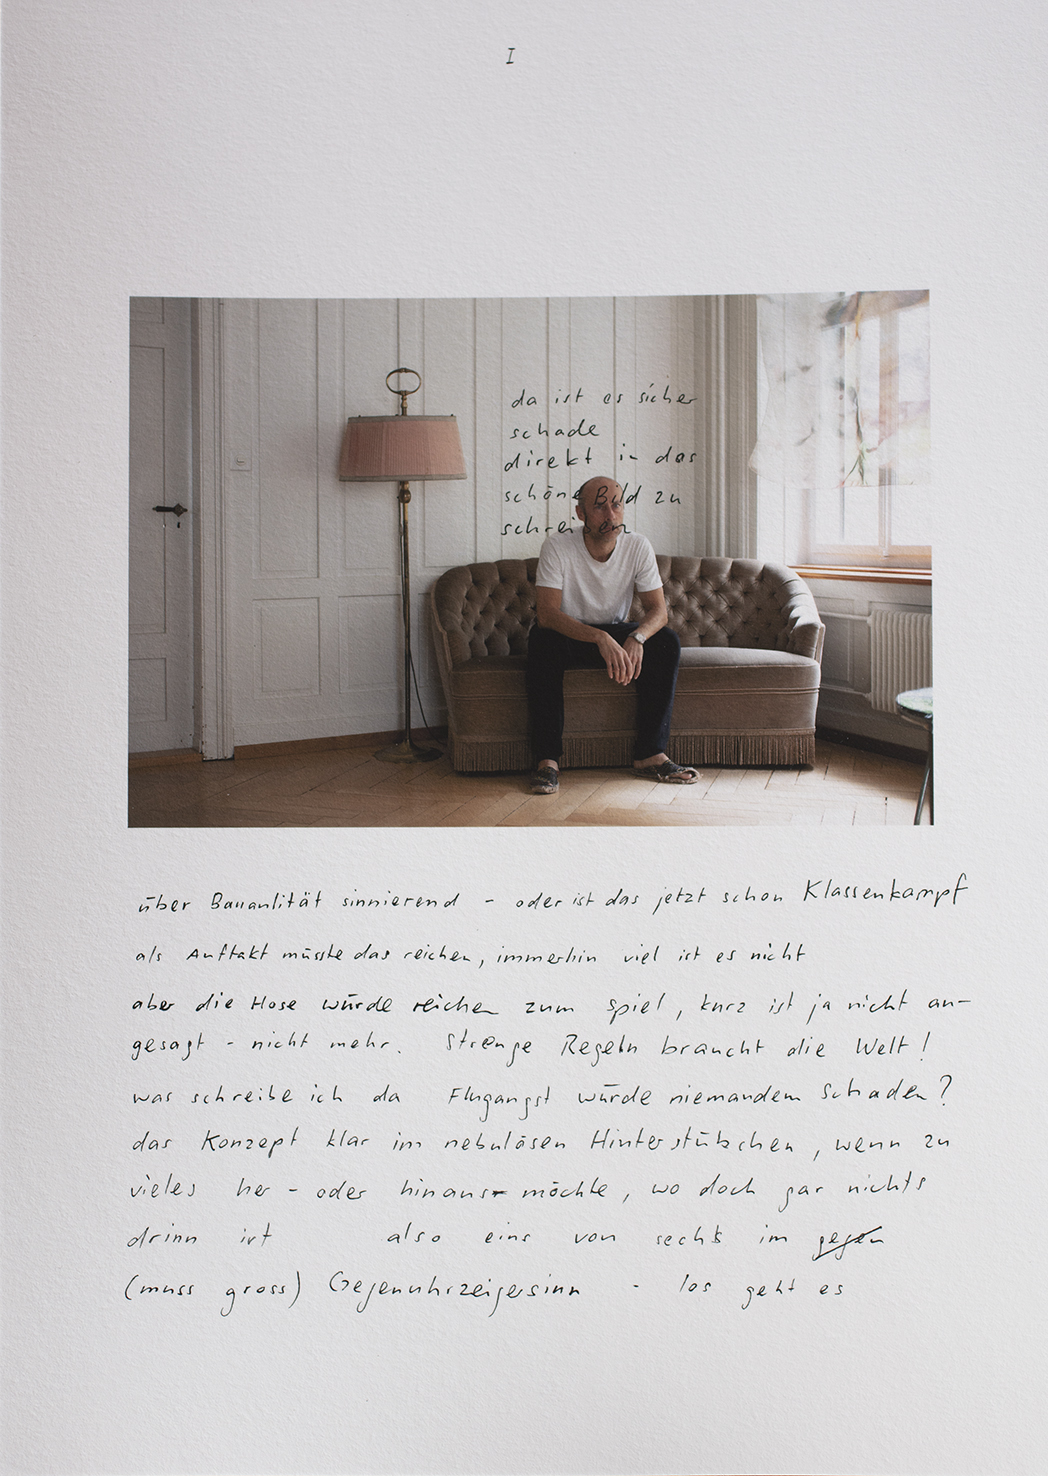 I
da ist es sicher
schade
direkt in das
schöne Bild zu
schreiben
über Bauanlität sinnierend - oder ist das jetzt schon Klassenkampf
als Auftakt müsste das reichen, immerhin viel ist es nicht
aber die Hose würde reichen zum spiel, kurz ist ja nicht an-
gesagt - nicht mehr. Strenge Regeln braucht die Welt!
was schreibe ich da Flugangst würde niemandem schaden?
das Konzept klar im nebulösen Hinterstübchen, wenn zu
vieles her - oder hinaus möchte, wo doch gar nichts
drinn ist also eins von sechs im gegen
(muss gross) Gegenuhrzeigersinn - los geht es